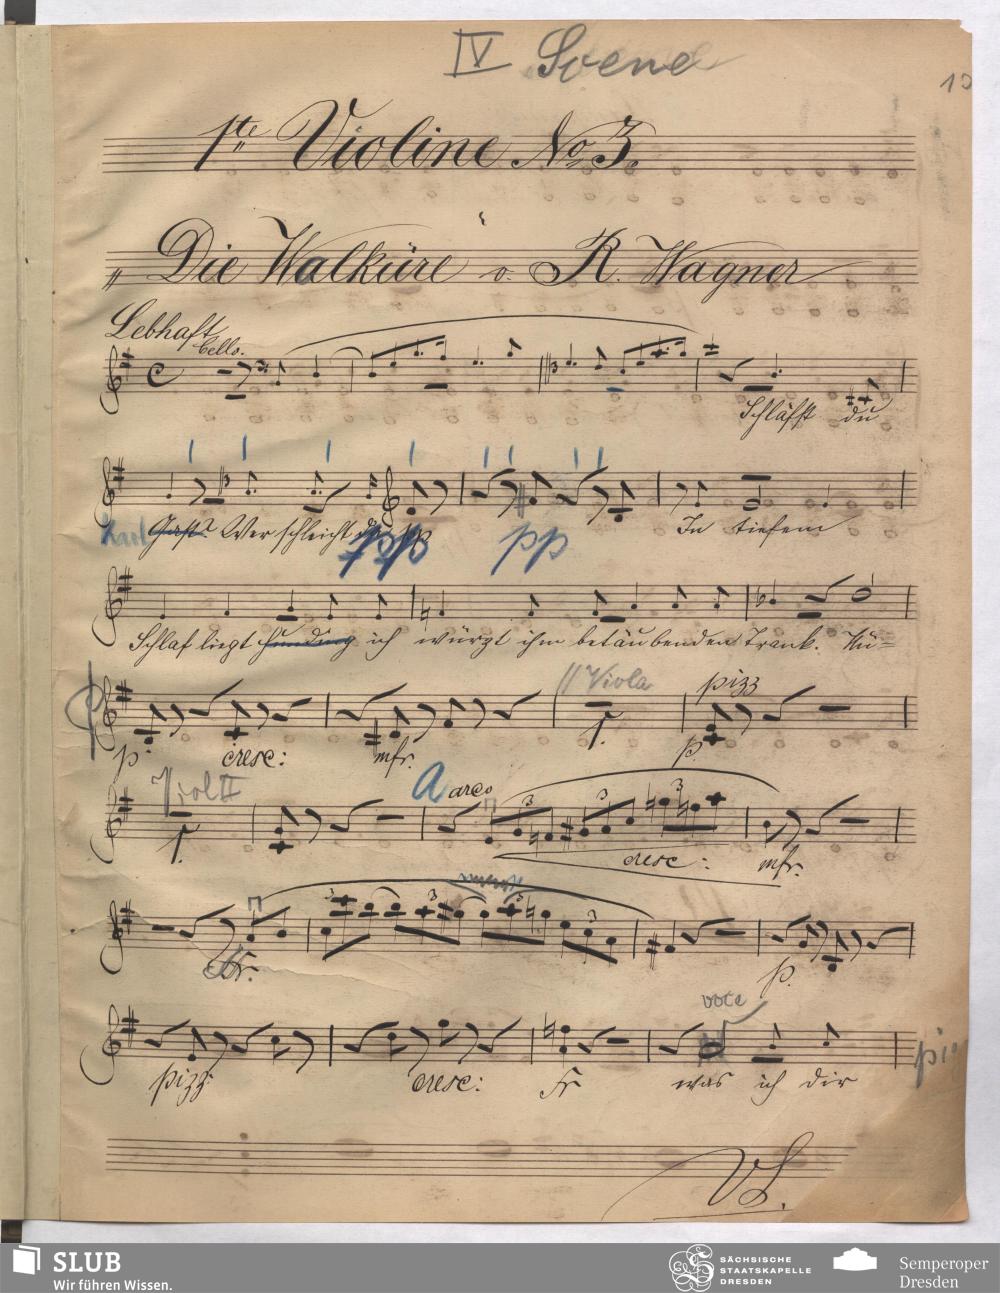 IV Scene
10
1te Violine No 3.
"Die Walküre" v. R. Wagner
Lebhaft
Cello.
Schläfst du
Gast? Wer schleicht da pp pp In tiefem
Schlaf liegt Hunding ich würzt ihm betäubenden Trank. Nü=
Viola pizz
p. cresc: mfr. p.
Viol II A arco
3 3 3
cresc: mfr.
3 3 3 3
ffr. p.
voce
pizz: cresc: Fr was ich dir
VS.
SLUB
Wir führen Wissen.
SÄCHSISCHE
STAATSKAPELLE
DRESDEN
Semperoper
Dresden